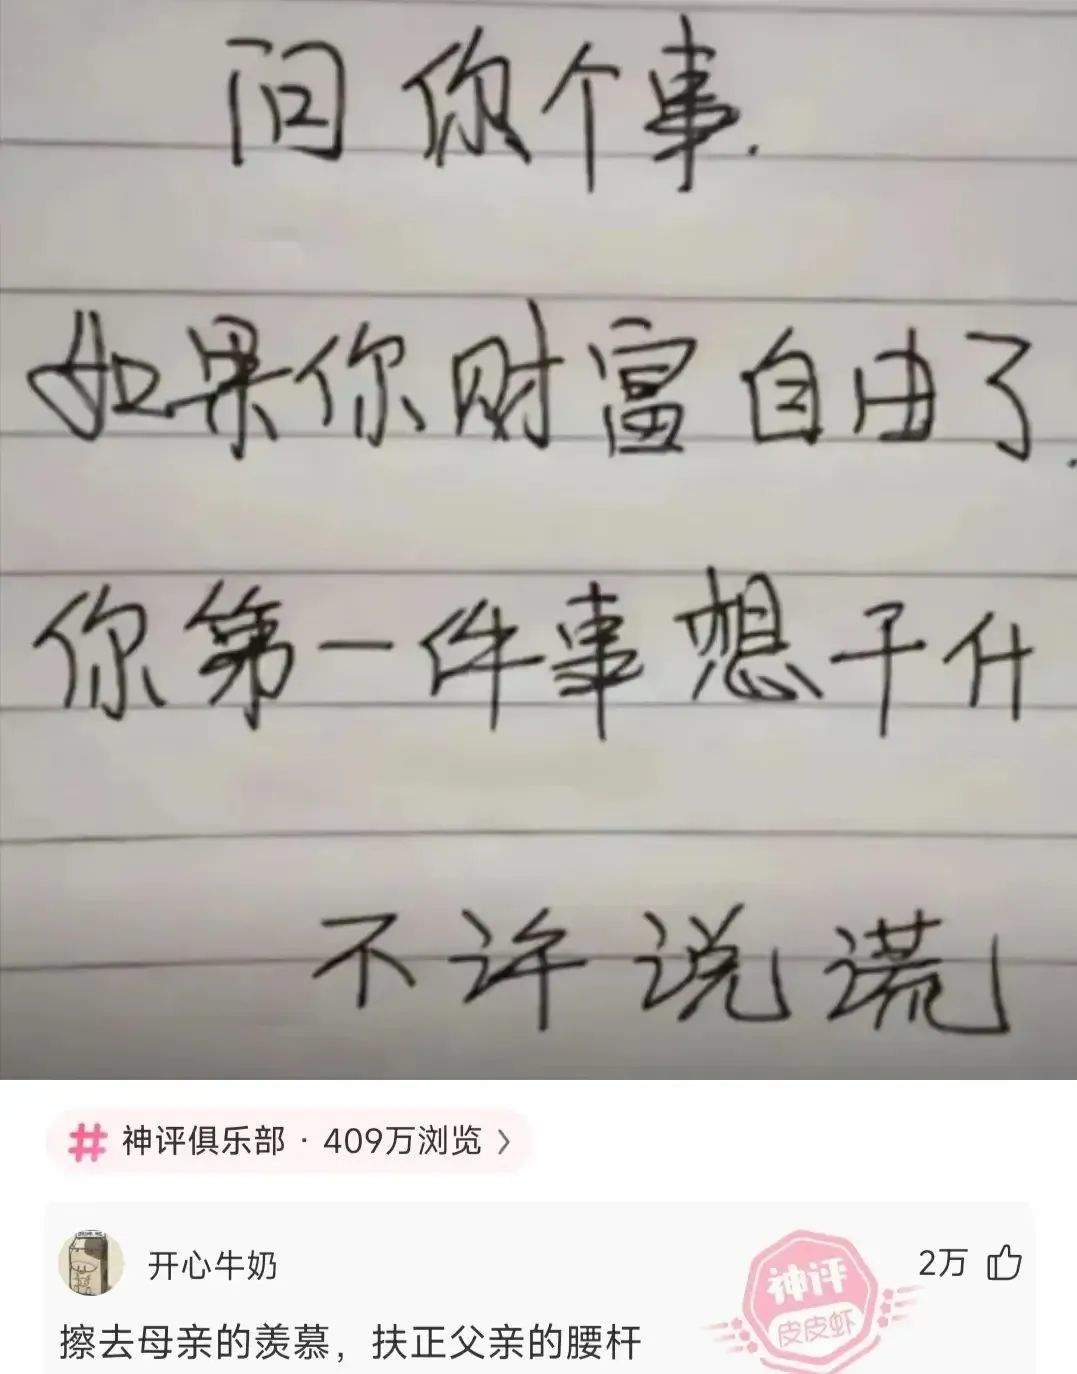 问你个事.
如果你财富自由了.
你第一件事想干什
不许说谎
# 神评俱乐部 · 409万浏览 >
开心牛奶
神评
皮皮虾
2万
擦去母亲的羡慕，扶正父亲的腰杆